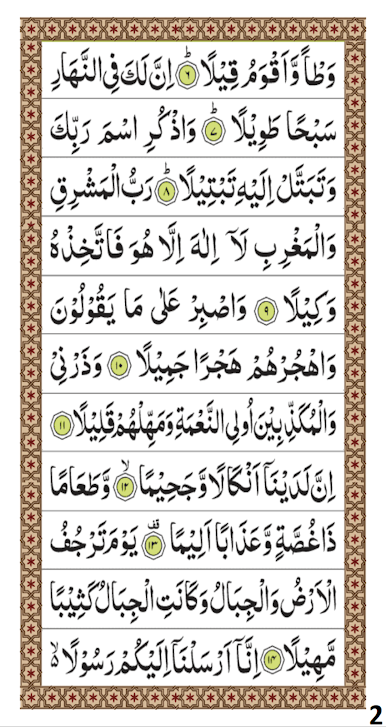 وَطْاً وَّاَقْوَمُ قِيْلًا ؕ ۶ اِنَّ لَكَ فِى النَّهَارِ
سَبْحًا طَوِيْلًا ؕ ۷ وَاذْكُرِ اسْمَ رَبِّكَ
وَتَبَتَّلْ اِلَيْهِ تَبْتِيْلًا ؕ ۸ رَبُّ الْمَشْرِقِ
وَالْمَغْرِبِ لَاۤ اِلٰهَ اِلَّا هُوَ فَاتَّخِذْهُ
وَكِيْلًا ۹ وَاصْبِرْ عَلٰى مَا يَقُوْلُوْنَ
وَاهْجُرْهُمْ هَجْرًا جَمِيْلًا ۱۰ وَذَرْنِىْ
وَالْمُكَذِّبِيْنَ اُولِى النَّعْمَةِ وَمَهِّلْهُمْ قَلِيْلًا ۱۱
اِنَّ لَدَيْنَاۤ اَنْكَالًا وَّجَحِيْمًا ۙ ۱۲ وَّطَعَامًا
ذَا غُصَّةٍ وَّعَذَابًا اَلِيْمًا ۱۳ يَوْمَ تَرْجُفُ
الْاَرْضُ وَالْجِبَالُ وَكَانَتِ الْجِبَالُ كَثِيْبًا
مَّهِيْلًا ۱۴ اِنَّاۤ اَرْسَلْنَاۤ اِلَيْكُمْ رَسُوْلًا ۙ
2